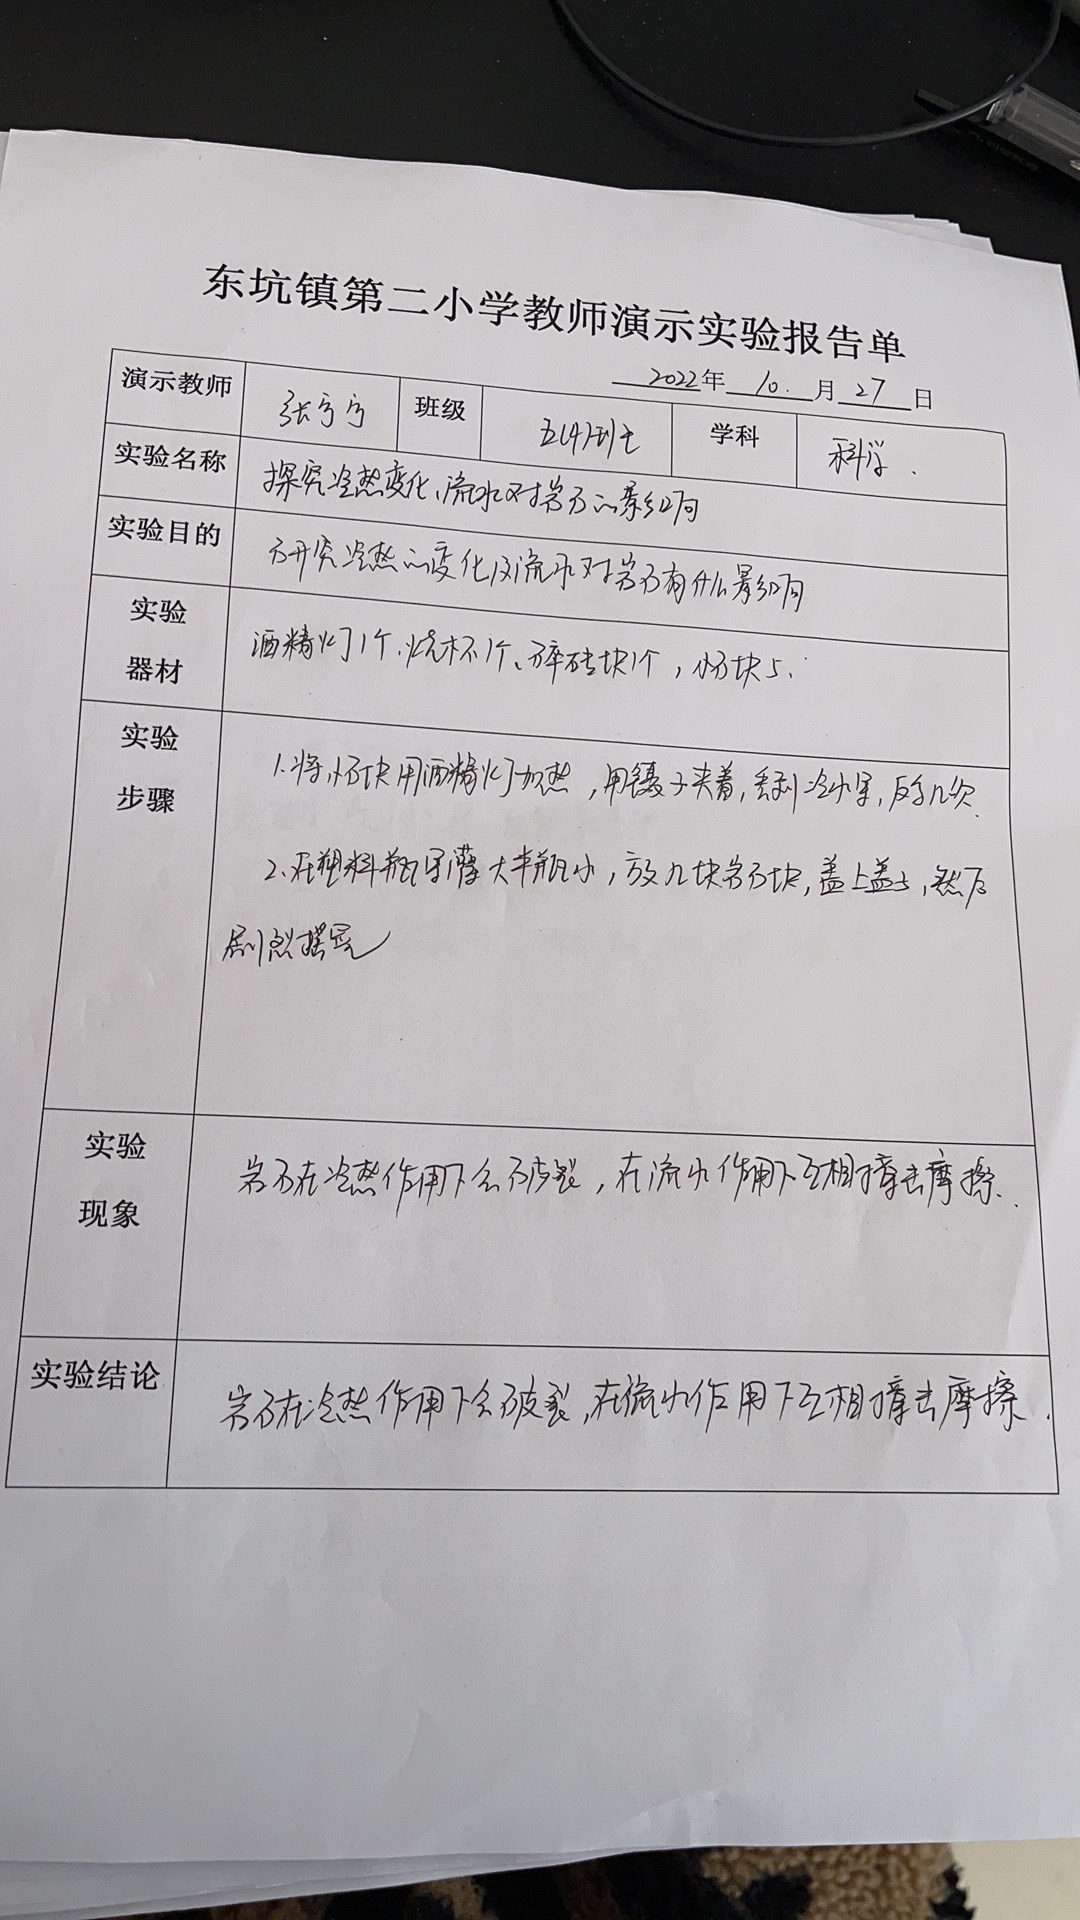 东坑镇第二小学教师演示实验报告单
2022年 10. 月 27 日
演示教师 张 班级 五(4)班 学科 科学.
实验名称 探究冷热变化、流水对岩石的影响
实验目的 研究冷热的变化及流水对岩石有什么影响
实验
器材 酒精灯1个、烧杯1个、碎砖块1个，小石块5.
实验
步骤
1.将小石块用酒精灯加热，用镊子夹着，丢到冷水里，反复几次.
2.在塑料瓶里灌大半瓶水，放几块岩石块，盖上盖子，然后
剧烈摇晃
实验
现象 岩石在冷热作用下会破裂，在流水作用下互相撞击摩擦.
实验结论 岩石在冷热作用下会破裂，在流水作用下互相撞击摩擦.